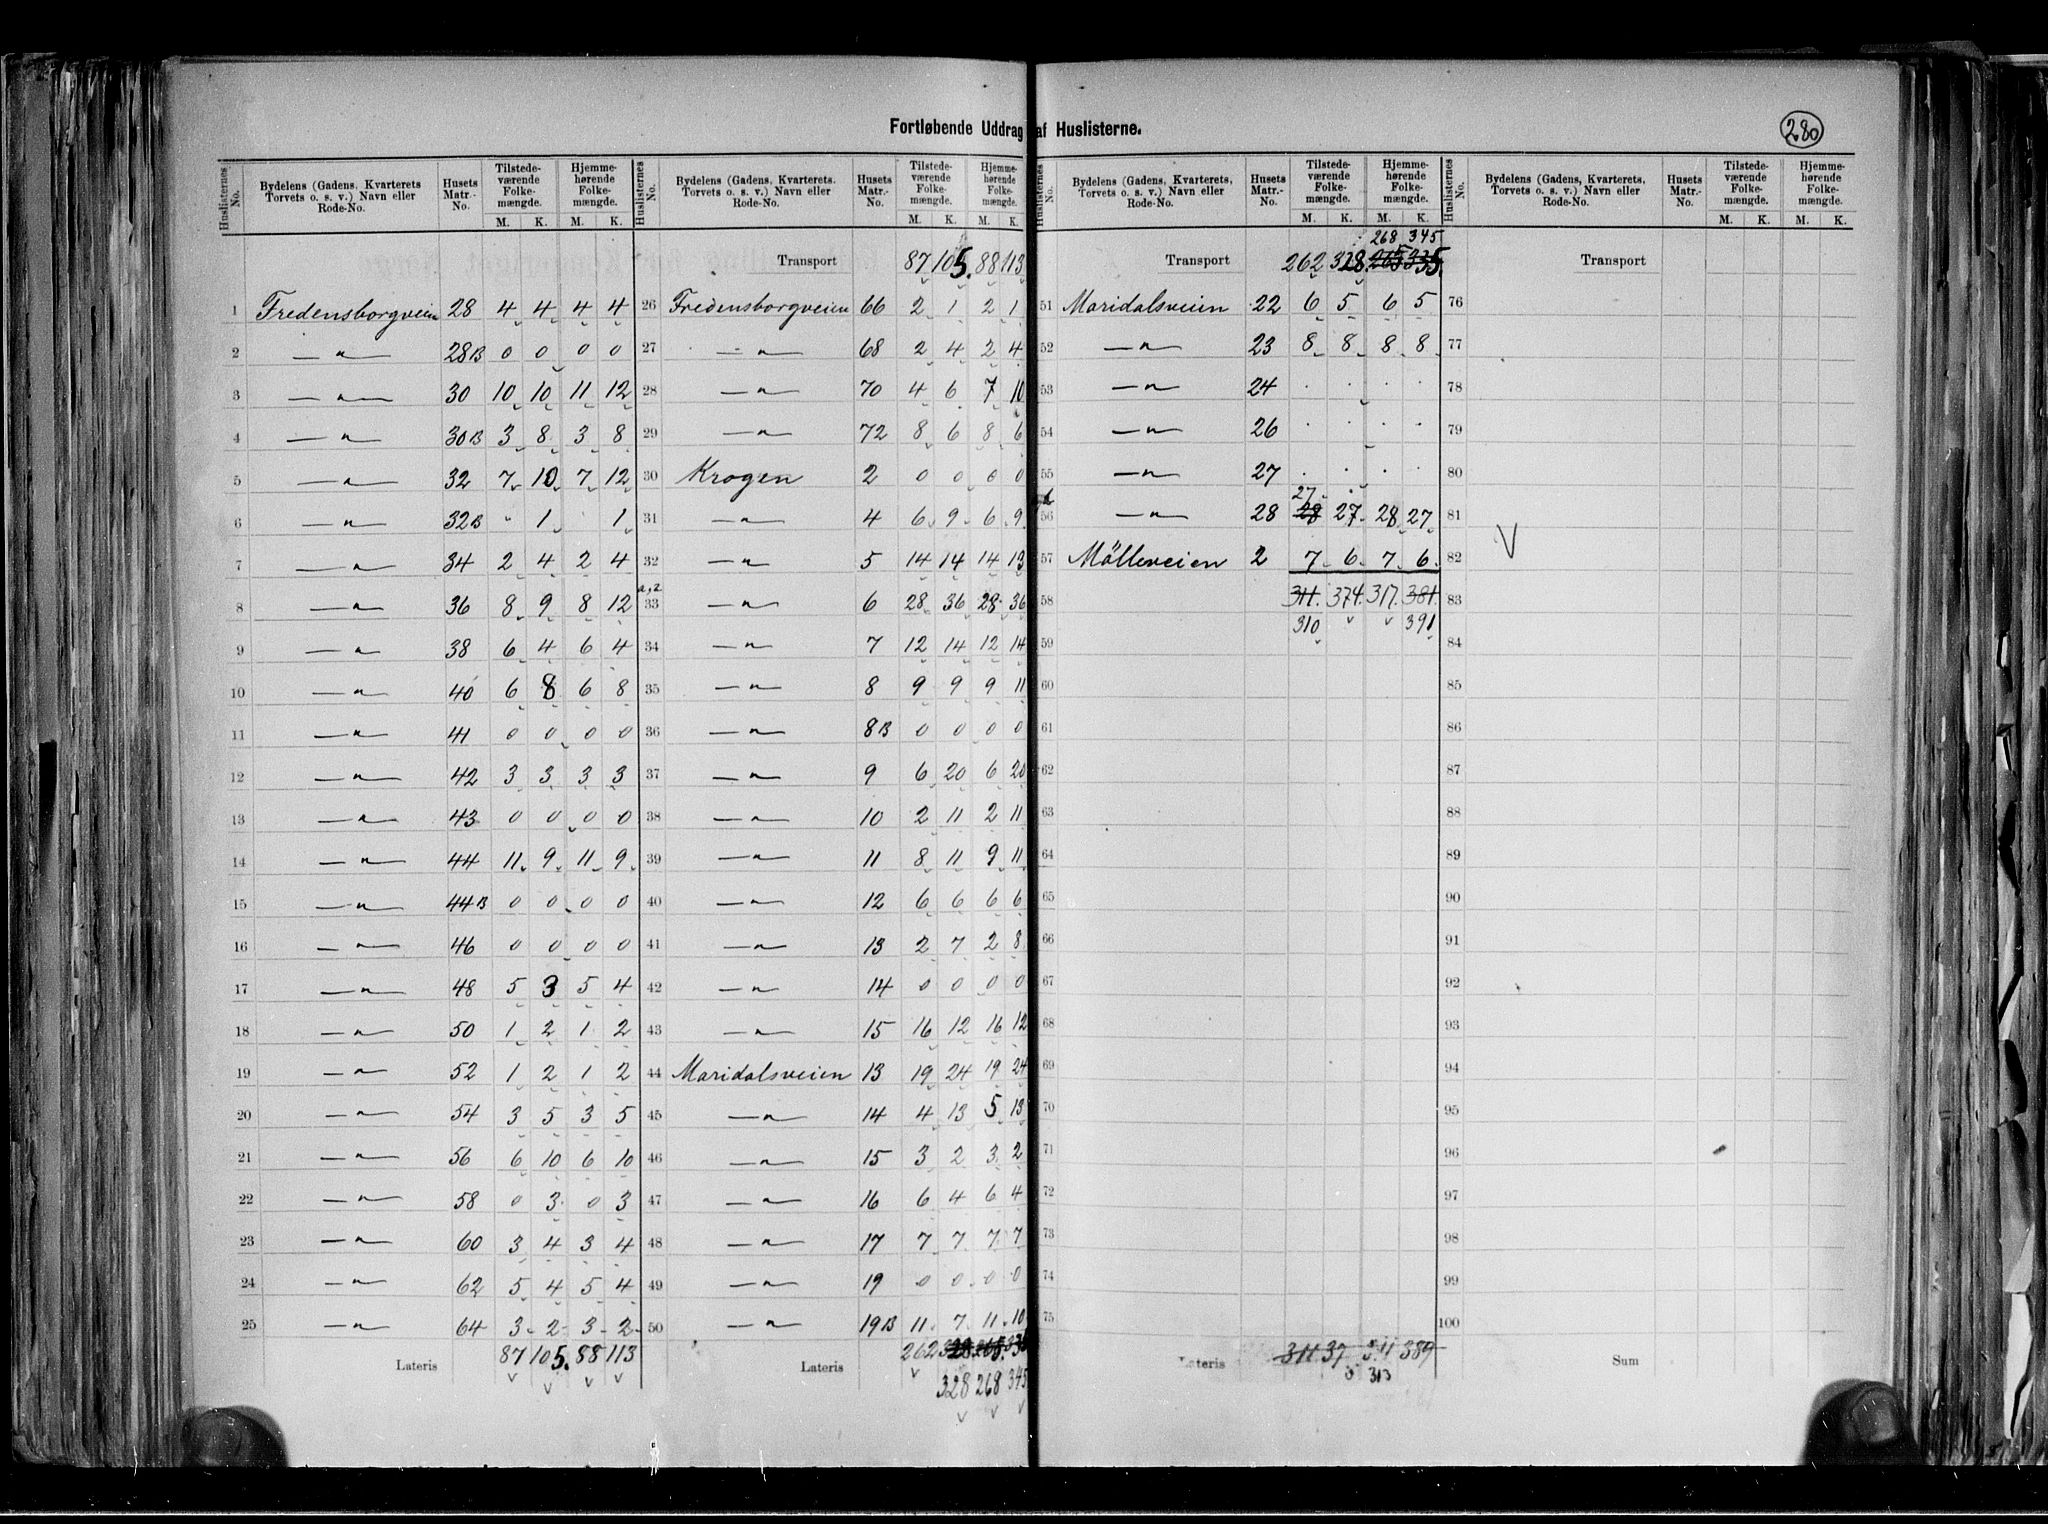 Fortløbende Uddrag af Huslisterne.
280
Huslisternes No. | Bydelens (Gadens, Kvarterets Torvets o. s. v.) Navn eller Rode-No. | Husets Matr.-No. | Tilstedeværende Folkemængde. M. K. | Hjemmehørende Folkemængde. M. K.
1 Fredensborgveien 28 4 4 4 4
2 —„— 28B 0 0 0 0
3 —„— 30 10 10 11 12
4 —„— 30B 3 8 3 8
5 —„— 32 7 10 7 12
6 —„— 32B " 1 1
7 —„— 34 2 4 2 4
8 —„— 36 8 9 8 12
9 —„— 38 6 4 6 4
10 —„— 40 6 8 6 8
11 —„— 41 0 0 0 0
12 —„— 42 3 3 3 3
13 —„— 43 0 0 0 0
14 —„— 44 11 9 11 9
15 —„— 44B 0 0 0 0
16 —„— 46 0 0 0 0
17 —„— 48 5 3 5 4
18 —„— 50 1 2 1 2
19 —„— 52 1 2 1 2
20 —„— 54 3 5 3 5
21 —„— 56 6 10 6 10
22 —„— 58 0 3 0 3
23 —„— 60 3 4 3 4
24 —„— 62 5 4 5 4
25 —„— 64 3 2 3 2
Lateris 87 105 88 113
Huslisternes No. | Bydelens (Gadens, Kvarterets, Torvets o. s. v.) Navn eller Rode-No. | Husets Matr.-No. | Tilstedeværende Folkemængde. M. K. | Hjemmehørende Folkemængde. M. K.
Transport 87 105. 88 113
26 Fredensborgveien 66 2 1 2 1
27 —„— 68 2 4 2 4
28 —„— 70 4 6 7 10
29 —„— 72 8 6 8 6
30 Krogen 2 0 0 0 0
31 —„— 4 6 9 6 9
32 —„— 5 14 14 14 13
33 —„— 6 28 36 28 36
34 —„— 7 12 14 12 14
35 —„— 8 9 9 9 11
36 —„— 8B 0 0 0 0
37 —„— 9 6 20 6 20
38 —„— 10 2 11 2 11
39 —„— 11 8 11 9 11
40 —„— 12 6 6 6 6
41 —„— 13 2 7 2 8
42 —„— 14 0 0 0 0
43 —„— 15 16 12 16 12
44 Maridalsveien 13 19 24 19 24
45 —„— 14 4 13 5 13
46 —„— 15 3 2 3 2
47 —„— 16 6 4 6 4
48 —„— 17 7 7 7 7
49 —„— 19 0 0 0 0
50 —„— 19B 11 7 11 10
Lateris 262 328 265 335
328 268 345
Huslisternes No. | Bydelens (Gadens, Kvarterets, Torvets o. s. v.) Navn eller Rode-No. | Husets Matr.-No. | Tilstedeværende Folkemængde. M. K. | Hjemmehørende Folkemængde. M. K.
268 345
Transport 262 328 265 335
51 Maridalsveien 22 6 5 6 5
52 —„— 23 8 8 8 8
53 —„— 24 . . . .
54 —„— 26 . . . .
55 —„— 27 . . . .
27
56 —„— 28 28 27 28 27
57 Mölleveien 2 7 6 7 6
58 311. 374. 317. 381.
310 391
59
60
61
62
63
64
65
66
67
68
69
70
71
72
73
74
75
Lateris 311 37 389
313
Huslisternes No. | Bydelens (Gadens, Kvarterets, Torvets o. s. v.) Navn eller Rode-No. | Husets Matr.-No. | Tilstedeværende Folkemængde. M. K. | Hjemmehørende Folkemængde. M. K.
Transport
76
77
78
79
80
81
82
83
84
85
86
87
88
89
90
91
92
93
94
95
96
97
98
99
100
Sum